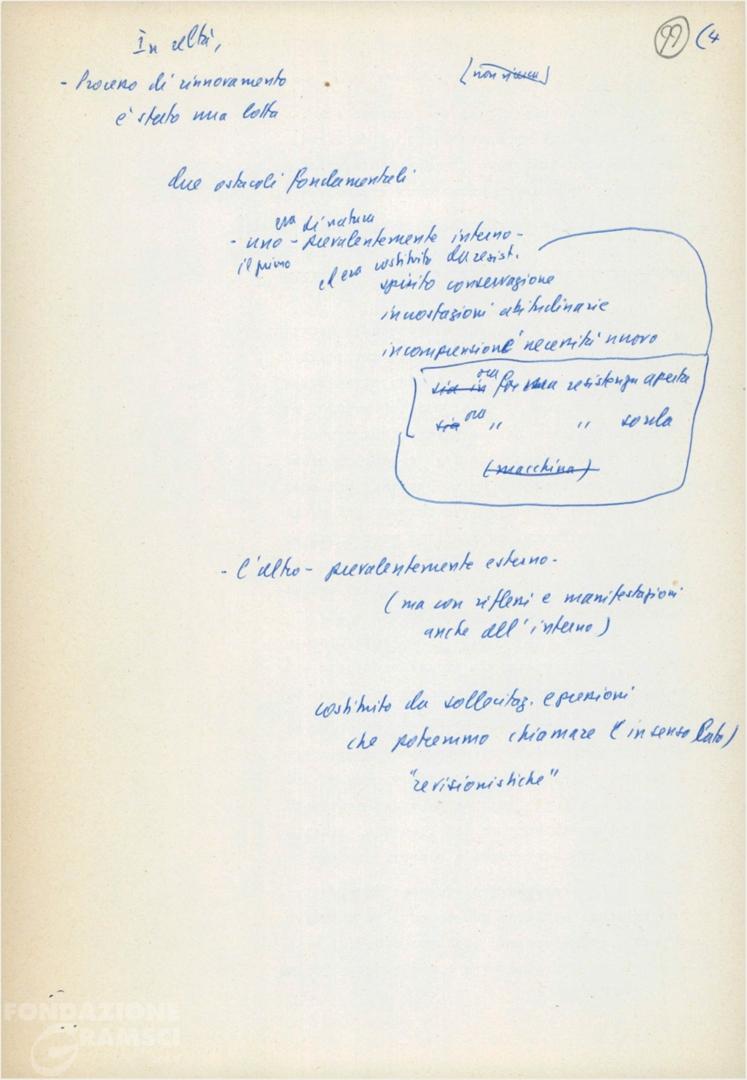 In realtà,
99 (4
- Processo di rinnovamento
è stato una lotta
due ostacoli fondamentali
era di natura
- uno - prevalentemente interno -
il primo
ed era costituito da resist.
spirito conservazione
incrostazioni abitudinarie
incomprensione necessità nuovo
ora
sia in forma resistenza aperta
sia ora " " sorda
(macchina)
- l'altro - prevalentemente esterno -
(ma con riflessi e manifestazioni
anche all'interno)
costituito da sollecitaz. e pressioni
che potremmo chiamare (in senso lato)
"revisionistiche"
FONDAZIONE
GRAMSCI